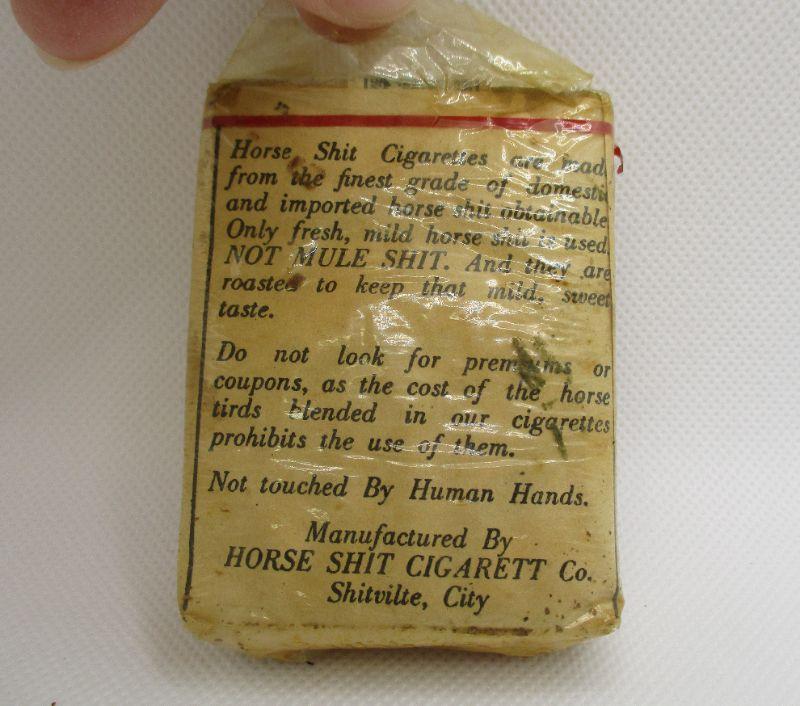 Horse Shit Cigarettes are mad
from the finest grade of domesti
and imported horse shit obtainable
Only fresh, mild horse shit is used,
NOT MULE SHIT. And they are
roasted to keep that mild, sweet
taste.
Do not look for premiums or
coupons, as the cost of the horse
tirds blended in our cigarettes
prohibits the use of them.
Not touched By Human Hands.
Manufactured By
HORSE SHIT CIGARETT Co.
Shitvilte, City